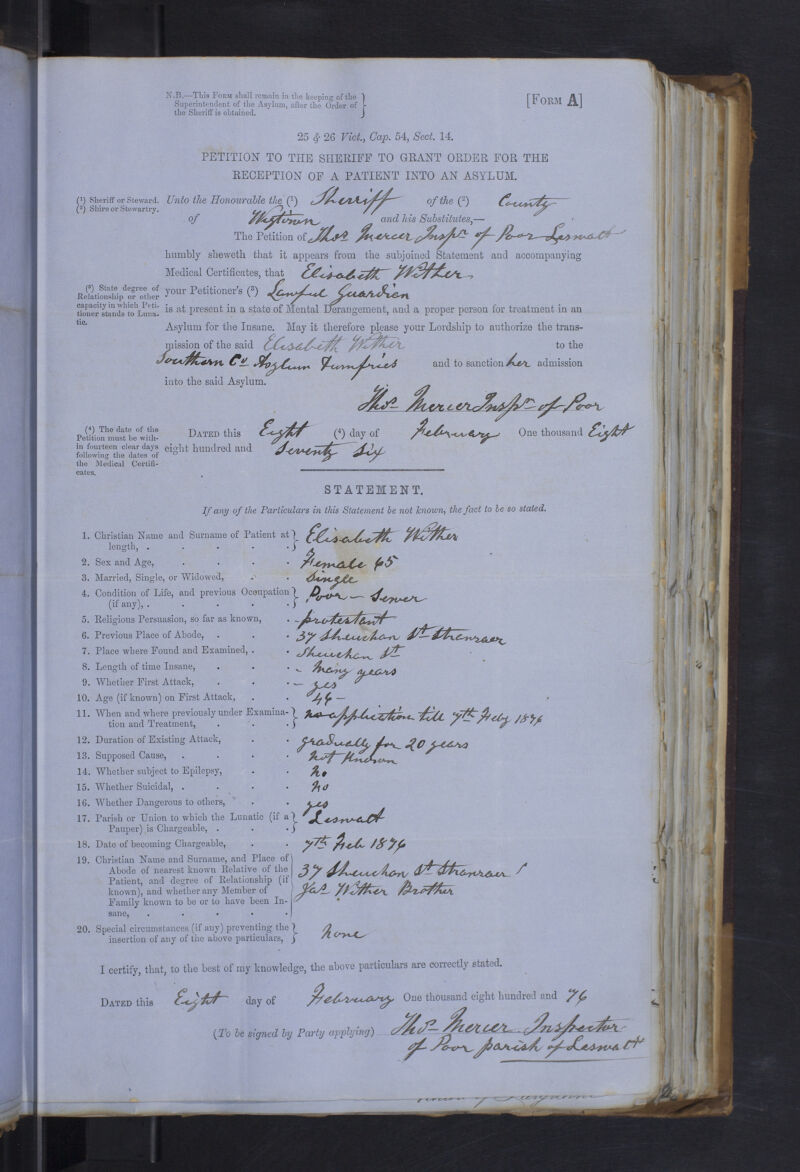 N.B.—This Form shall remain in the keeping of the
Superintendent of the Asylum, after the Order of
the Sheriff is obtained.
[Form A]
25 & 26 Vict., Cap. 54, Sect. 14.
PETITION TO THE SHERIFF TO GRANT ORDER FOR THE
RECEPTION OF A PATIENT INTO AN ASYLUM.
(1) Sheriff or Steward.
(2) Shire or Stewartry.
Unto the Honourable the (1) Sherriff of the (2) County
of Wigtown and his Substitutes,—
The Petition of Thos Mercer Inspr of Poor Leswalt
humbly sheweth that it appears from the subjoined Statement and accompanying
Medical Certificates, that Elisabeth Wither
(3) State degree of
Relationship or other
capacity in which Peti-
tioner stands to Luna-
tic.
your Petitioner's (3) Lawful Guardian
is at present in a state of Mental Derangement, and a proper person for treatment in an
Asylum for the Insane. May it therefore please your Lordship to authorize the trans-
mission of the said Elisabeth Wither to the
Southern Cy Asylum Dumfries and to sanction her admission
into the said Asylum.
Thos Mercer Inspr of Poor
(4) The date of the
Petition must be with-
in fourteen clear days
following the dates of
the Medical Certifi-
cates.
Dated this Eight (4) day of February One thousand Eight
eight hundred and Seventy Six
STATEMENT.
If any of the Particulars in this Statement be not known, the fact to be so stated.
1. Christian Name and Surname of Patient at
length, . . . . . Elisabeth Wither
2. Sex and Age, . . . . Female 65
3. Married, Single, or Widowed, . . Single
4. Condition of Life, and previous Occupation
(if any), . . . . . Poor — Sewer
5. Religious Persuasion, so far as known, . protestant
6. Previous Place of Abode, . . . 37 Sheuchan St Stranraer
7. Place where Found and Examined, . . Sheuchan St
8. Length of time Insane, . . . - Many years
9. Whether First Attack, . . . - yes
10. Age (if known) on First Attack, . . 46 -
11. When and where previously under Examina-
tion and Treatment, . . . no application till 7th Feby 1876
12. Duration of Existing Attack, . . gradually for 20 years
13. Supposed Cause, . . . . Not Known
14. Whether subject to Epilepsy, . . No
15. Whether Suicidal, . . . . No
16. Whether Dangerous to others, . . yes
17. Parish or Union to which the Lunatic (if a
Pauper) is Chargeable, . . . Leswalt
18. Date of becoming Chargeable, . . 7th Feb 1876
19. Christian Name and Surname, and Place of
Abode of nearest known Relative of the
Patient, and degree of Relationship (if
known), and whether any Member of
Family known to be or to have been In-
sane, . . . . .
37 Sheuchan St Stranraer
Jas Wither Brother
20. Special circumstances (if any) preventing the
insertion of any of the above particulars, None
I certify, that, to the best of my knowledge, the above particulars are correctly stated.
Dated this Eight day of February One thousand eight hundred and 76
(To be signed by Party applying) Thos Mercer Inspector
of Poor parish of Leswalt